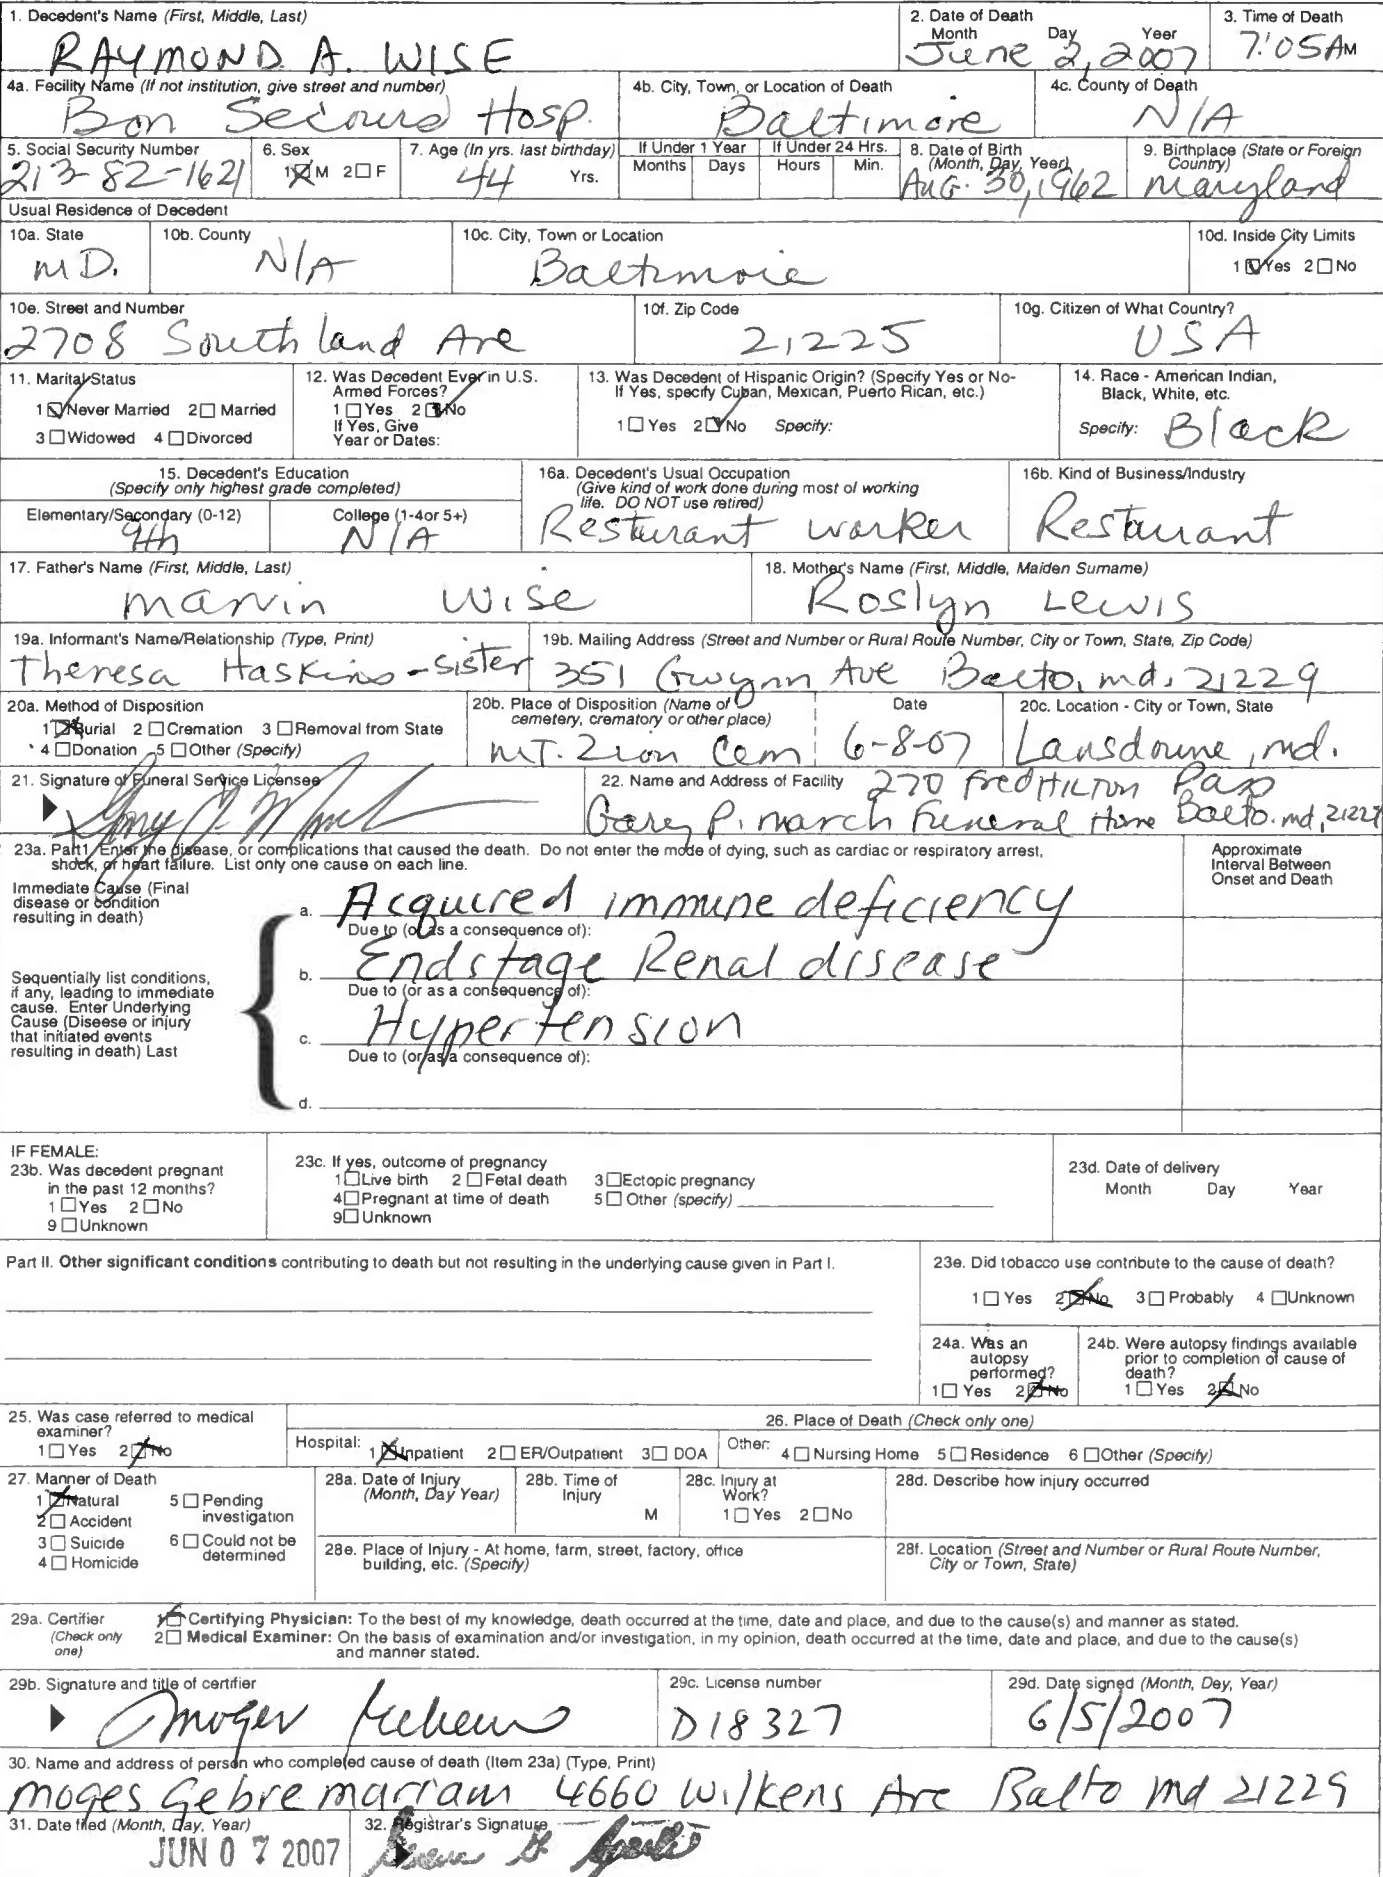 1. Decedent's Name (First, Middle, Last)
RAYMOND A. WISE
2. Date of Death
Month Day Year
June 2, 2007
3. Time of Death
7:05 AM
4a. Facility Name (If not institution, give street and number)
Bon Secours Hosp.
4b. City, Town, or Location of Death
Baltimore
4c. County of Death
N/A
5. Social Security Number
213-82-1621
6. Sex
1 M 2 F
7. Age (In yrs. last birthday)
44 Yrs.
If Under 1 Year
Months Days
If Under 24 Hrs.
Hours Min.
8. Date of Birth
(Month, Day, Year)
Aug. 30, 1962
9. Birthplace (State or Foreign
Country)
Maryland
Usual Residence of Decedent
10a. State
MD.
10b. County
N/A
10c. City, Town or Location
Baltimore
10d. Inside City Limits
1 Yes 2 No
10e. Street and Number
2708 Southland Ave
10f. Zip Code
21225
10g. Citizen of What Country?
USA
11. Marital Status
1 Never Married 2 Married
3 Widowed 4 Divorced
12. Was Decedent Ever in U.S.
Armed Forces?
1 Yes 2 No
If Yes, Give
Year or Dates:
13. Was Decedent of Hispanic Origin? (Specify Yes or No-
If Yes, specify Cuban, Mexican, Puerto Rican, etc.)
1 Yes 2 No Specify:
14. Race - American Indian,
Black, White, etc.
Specify: Black
15. Decedent's Education
(Specify only highest grade completed)
Elementary/Secondary (0-12)
9th
College (1-4or 5+)
N/A
16a. Decedent's Usual Occupation
(Give kind of work done during most of working
life. DO NOT use retired)
Resturant worker
16b. Kind of Business/Industry
Resturant
17. Father's Name (First, Middle, Last)
Marvin Wise
18. Mother's Name (First, Middle, Maiden Surname)
Roslyn Lewis
19a. Informant's Name/Relationship (Type, Print)
Theresa Haskins - sister
19b. Mailing Address (Street and Number or Rural Route Number, City or Town, State, Zip Code)
351 Gwynn Ave Balto, md, 21229
20a. Method of Disposition
1 Burial 2 Cremation 3 Removal from State
4 Donation 5 Other (Specify)
20b. Place of Disposition (Name of
cemetery, crematory or other place)
MT. Zion Cem
Date
6-8-07
20c. Location - City or Town, State
Lansdowne, md.
21. Signature of Funeral Service Licensee
22. Name and Address of Facility 270 FredHILTON Pass
Gary P. march Funeral Home Balto. md, 21229
23a. Part1. Enter the disease, or complications that caused the death. Do not enter the mode of dying, such as cardiac or respiratory arrest,
shock, or heart failure. List only one cause on each line.
Approximate
Interval Between
Onset and Death
Immediate Cause (Final
disease or condition
resulting in death)
a. Acquired immune deficiency
Due to (or as a consequence of):
b. Endstage Renal disease
Due to (or as a consequence of):
Sequentially list conditions,
if any, leading to immediate
cause. Enter Underlying
Cause (Disease or injury
that initiated events
resulting in death) Last
c. Hypertension
Due to (or as a consequence of):
d.
IF FEMALE:
23b. Was decedent pregnant
in the past 12 months?
1 Yes 2 No
9 Unknown
23c. If yes, outcome of pregnancy
1 Live birth 2 Fetal death 3 Ectopic pregnancy
4 Pregnant at time of death 5 Other (specify)
9 Unknown
23d. Date of delivery
Month Day Year
Part II. Other significant conditions contributing to death but not resulting in the underlying cause given in Part I.
23e. Did tobacco use contribute to the cause of death?
1 Yes 2 No 3 Probably 4 Unknown
24a. Was an
autopsy
performed?
1 Yes 2 No
24b. Were autopsy findings available
prior to completion of cause of
death?
1 Yes 2 No
25. Was case referred to medical
examiner?
1 Yes 2 No
26. Place of Death (Check only one)
Hospital: 1 Inpatient 2 ER/Outpatient 3 DOA
Other: 4 Nursing Home 5 Residence 6 Other (Specify)
27. Manner of Death
1 Natural
2 Accident
3 Suicide
4 Homicide
5 Pending
investigation
6 Could not be
determined
28a. Date of Injury
(Month, Day Year)
28b. Time of
Injury
M
28c. Injury at
Work?
1 Yes 2 No
28d. Describe how injury occurred
28e. Place of Injury - At home, farm, street, factory, office
building, etc. (Specify)
28f. Location (Street and Number or Rural Route Number,
City or Town, State)
29a. Certifier
(Check only
one)
1 Certifying Physician: To the best of my knowledge, death occurred at the time, date and place, and due to the cause(s) and manner as stated.
2 Medical Examiner: On the basis of examination and/or investigation, in my opinion, death occurred at the time, date and place, and due to the cause(s)
and manner stated.
29b. Signature and title of certifier
29c. License number
D18327
29d. Date signed (Month, Day, Year)
6/5/2007
30. Name and address of person who completed cause of death (Item 23a) (Type, Print)
moges Gebremarriam 4660 Wilkens Ave Balto md 21229
31. Date filed (Month, Day, Year)
JUN 07 2007
32. Registrar's Signature